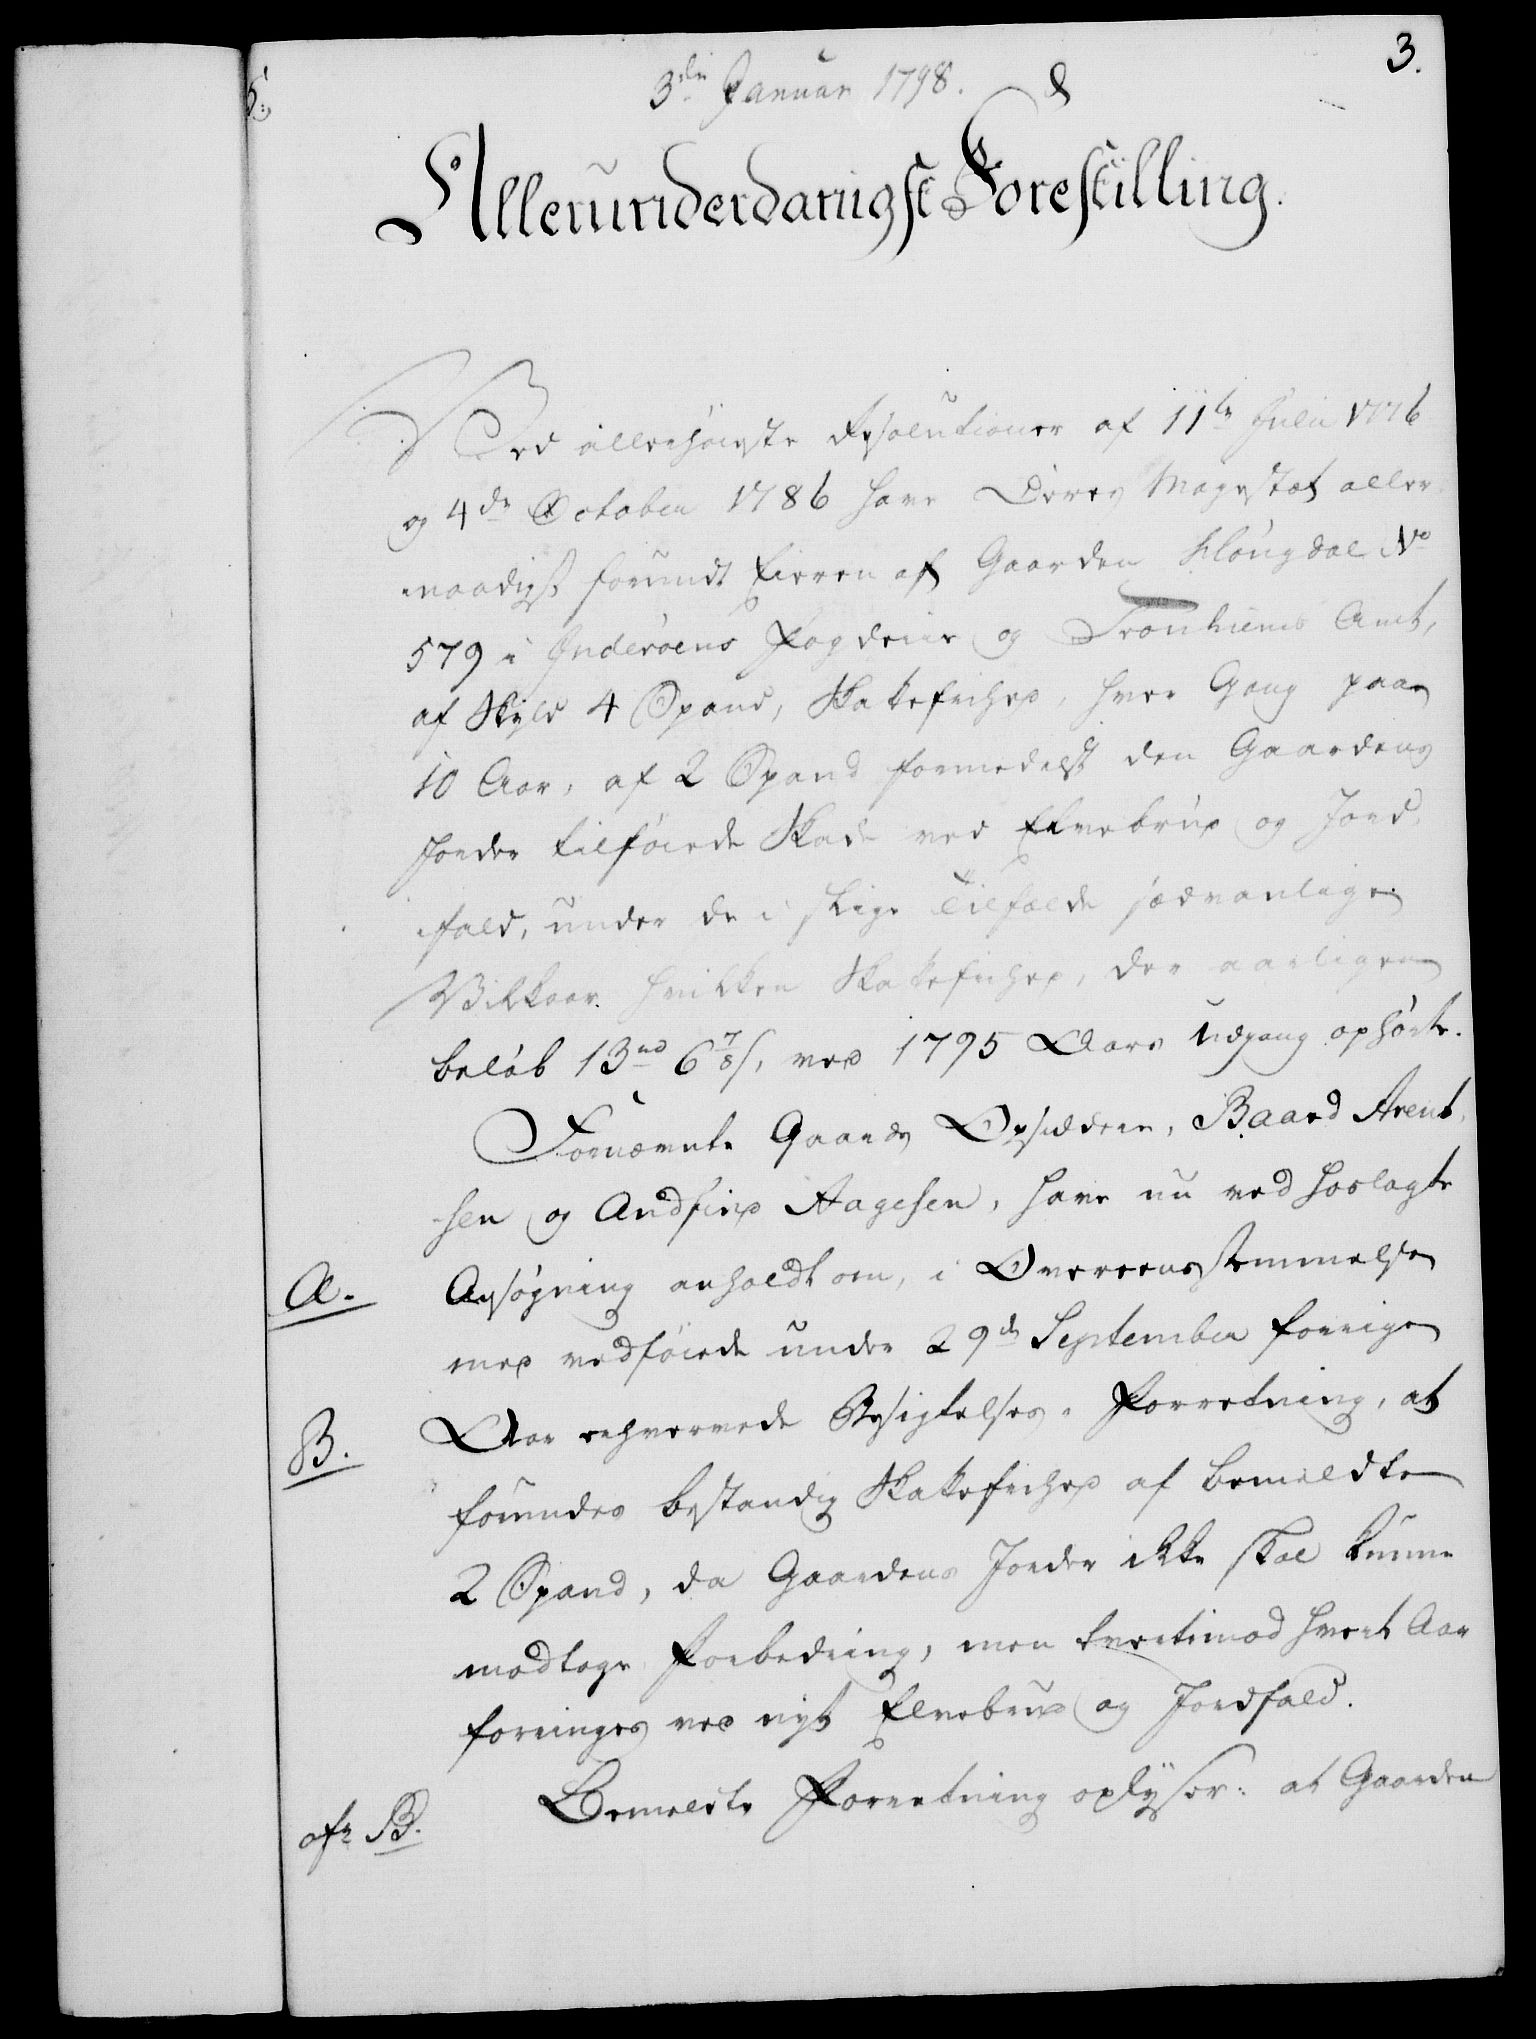 3.
3die Januar 1798.
Allerunderdanigst Forestilling.
Ved allerhøieste Resolutioner af 11te Julii 1776
og 4de October 1786 have Deres Majestæt aller-
naadigst forundt Eieren af Gaarden Kløngdal No
579 i Inderøens Fogderie og Tronhiems Amt,
af Skyld 4 Spand, Skatefrihed, hver Gang paa
10 Aar, af 2 Spand formedelst den Gaardens
Jorder tilføiede Skade ved Elvebrud og Jord-
fald, under de i slige Tilfælde sædvanlige
Vilkaar. Hvilken Skatefrihed, der aarligen
beløb 13rd 6 7/8 s, ved 1795 Aars Udgang ophørte.
Fornævnte Gaards Opsiddere, Baard Arent-
sen og Andfind Aagesen, have nu ved hoslagte
A. Ansøgning anholdt om, i Overeensstemmelse
med vedføiede under 29de September forrige
B. Aar erhvervede Besigtelses-Forretning, at
forundes bestandig Skatefrihed af bemeldte
2 Spand, da Gaardens Jorder ikke skal kunne
modtage Forbedring, men tvertimod hvert Aar
foringes ved nyt Elvebrud og Jordfald.
afr B. Bemeldte Forretning oplyser: at Gaarden